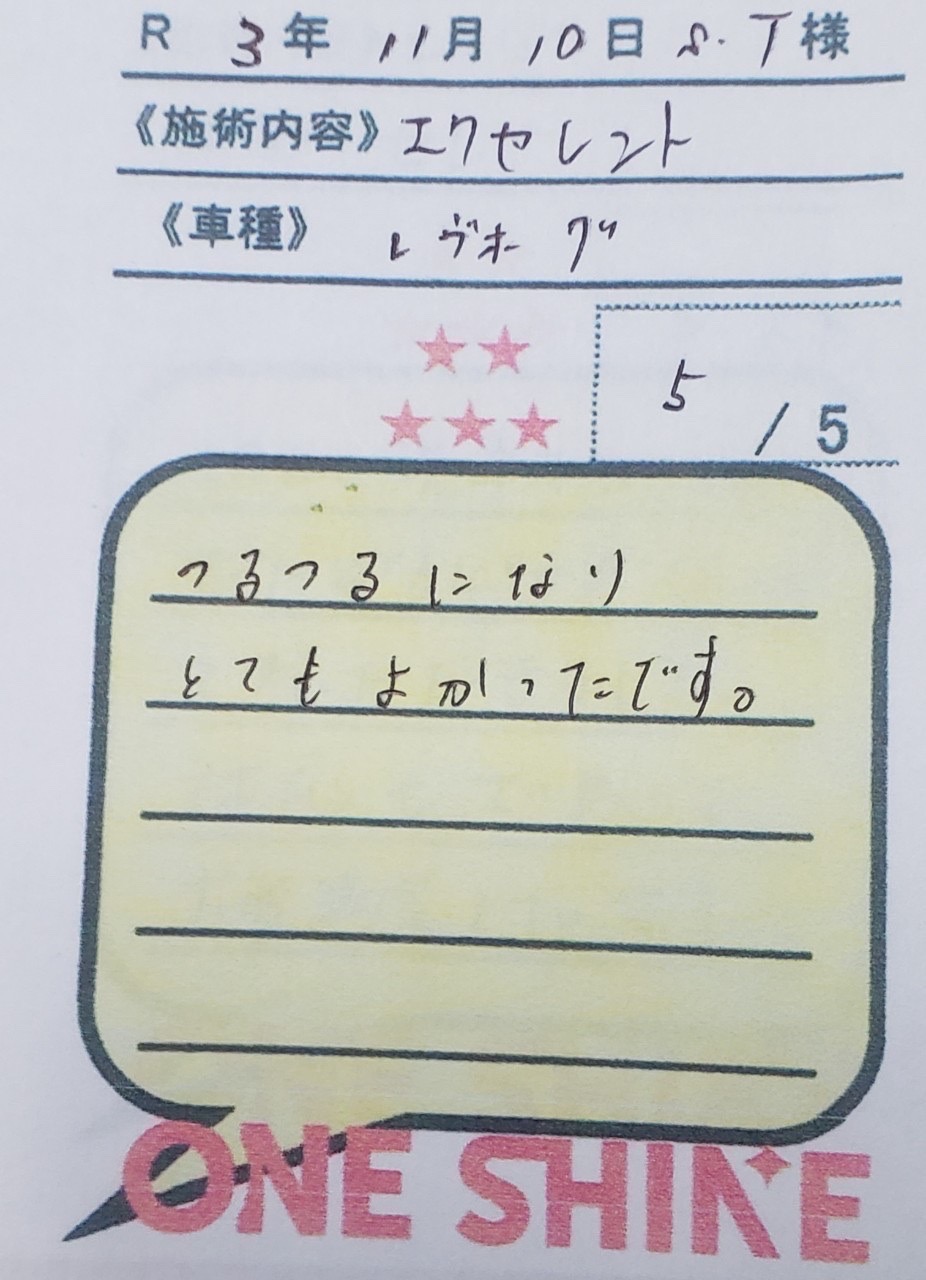 R 3年 11月 10日 S.T様
《施術内容》エクセレント
《車種》レヴォーグ
★★
★★★
5 / 5
つるつるになり
とてもよかったです。
ONE SHINE